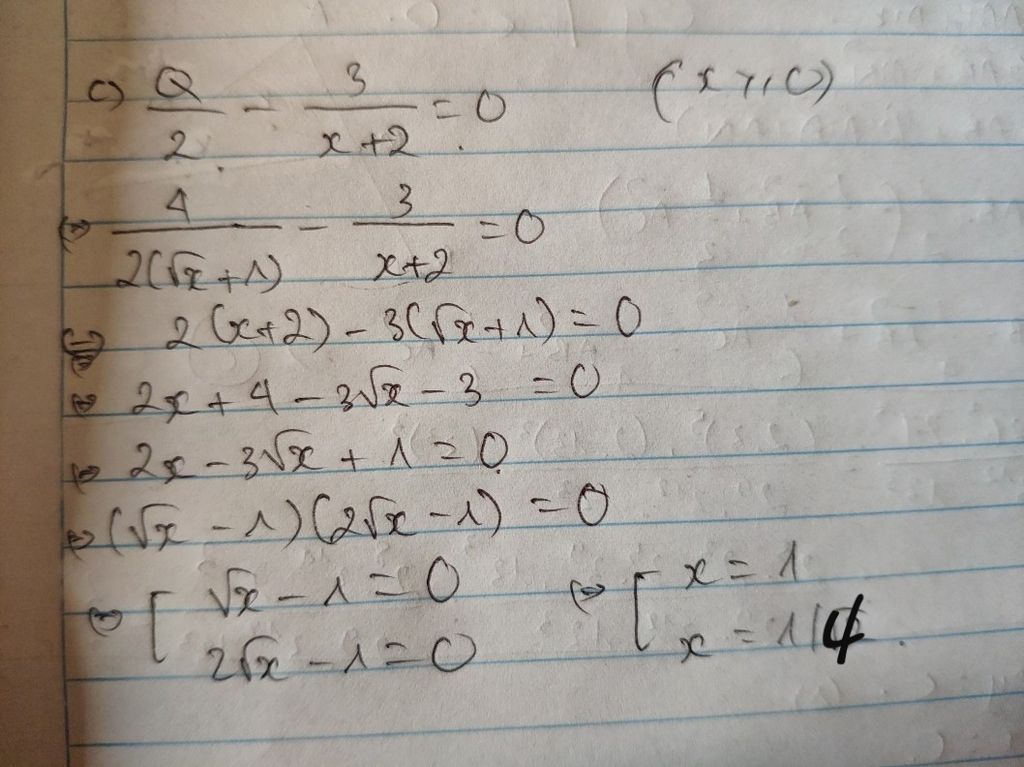 c) Q/2 - 3/(x+2) = 0 (x ⩾ 0)
⇔ 4/(2(√x+1)) - 3/(x+2) = 0
⇔ 2(x+2) - 3(√x+1) = 0
⇔ 2x + 4 - 3√x - 3 = 0
⇔ 2x - 3√x + 1 = 0
⇔ (√x - 1)(2√x - 1) = 0
⇔ [ √x - 1 = 0 ⇔ [ x = 1
2√x - 1 = 0 x = 1/4.